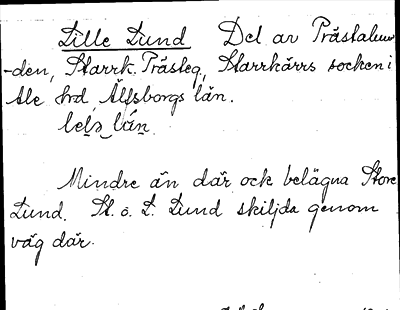 Lille Lund Del av Prästalun-
-den, Starrk. Prästeg., Starrkärrs socken i
Ale hrd, Älfsborgs län.
Mindre än där ock belägna Store
Lund. St. o. L. Lund skiljda genom
väg där.